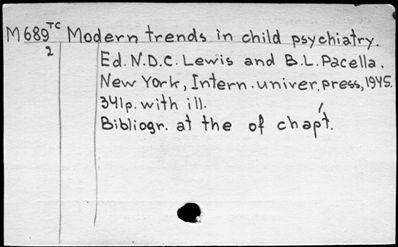 M689 TC Modern trends in child psychiatry.
2 Ed. N.D.C. Lewis and B.L. Pacella.
New York, Intern. univer. press, 1945.
341p. with ill.
Bibliogr. at the of chapt.